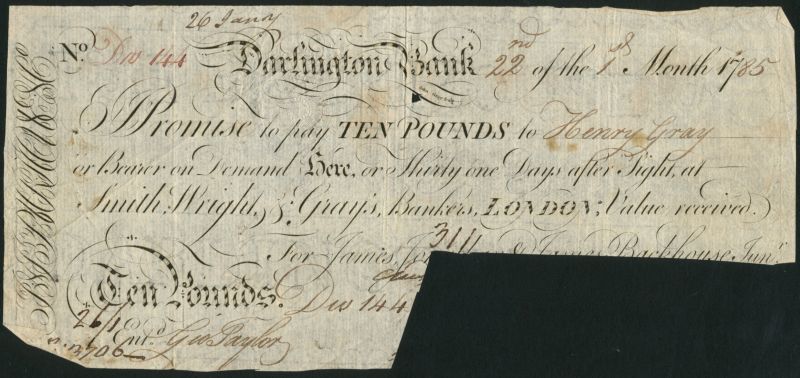 26 Jany
No. Dw 144 Darlington Bank 22nd of the 1st Month 1785
I Promise to pay TEN POUNDS to Henry Gray
or Bearer on Demand Here, or Thirty one Days after Sight, at
Smith, Wright, & Gray's, Bankers, LONDON; Value received.
For James, Jon & James Backhouse Junr.
311
Ten Pounds. Dw 144
26/1
Entd. Geo Taylor
3706